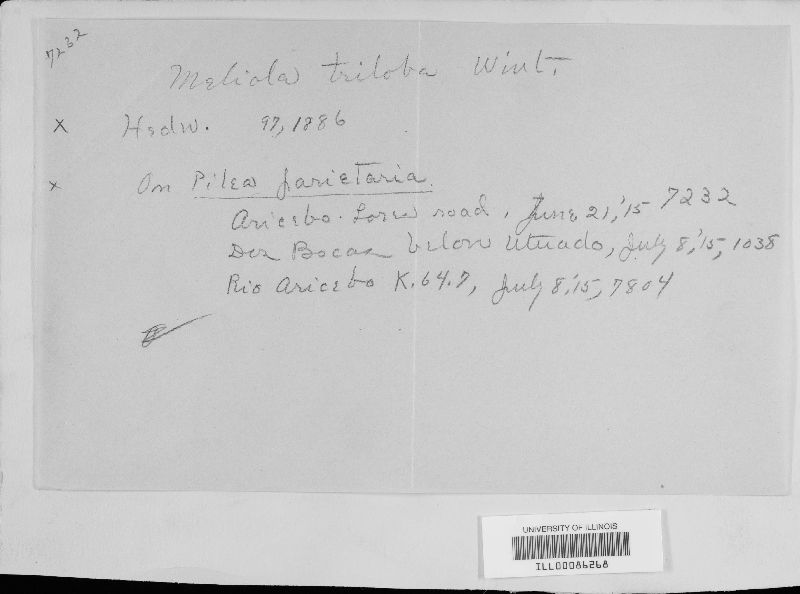 7232
Meliola triloba Wint.
x Hedw. 97, 1886
x On Pilea parietaria.
Aricebo. Lores road, June 21,'15 7232
Dos Bocas below Utuado, July 8,'15, 1038
Rio Aricebo K.64.7, July 8,'15, 7804
UNIVERSITY OF ILLINOIS
ILL00086268